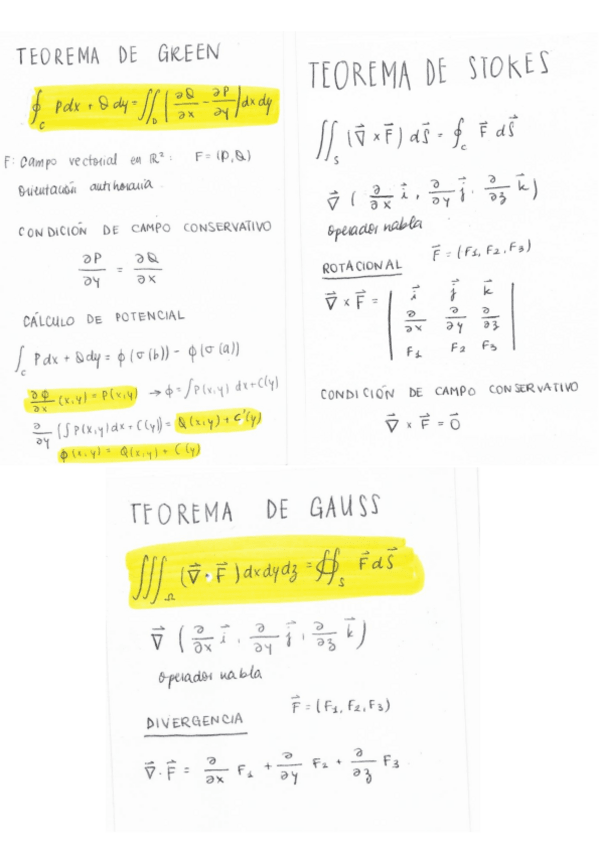 TEOREMA DE GREEN
∮_C Pdx + Qdy = ∬_D (∂Q/∂x - ∂P/∂y) dxdy
F: Campo vectorial en ℝ²: F = (P,Q)
Orientación antihoraria
CONDICIÓN DE CAMPO CONSERVATIVO
∂P/∂y = ∂Q/∂x
CÁLCULO DE POTENCIAL
∫_C Pdx + Qdy = ϕ(σ(b)) - ϕ(σ(a))
∂ϕ/∂x (x,y) = P(x,y) → ϕ = ∫P(x,y) dx + C(y)
∂/∂y (∫P(x,y)dx + C(y)) = Q(x,y) + C'(y)
ϕ(x,y) = Q(x,y) + C(y)
TEOREMA DE STOKES
∬_S (∇⃗ × F⃗) dS⃗ = ∮_C F⃗ dS⃗
∇⃗ (∂/∂x i⃗, ∂/∂y j⃗, ∂/∂z k⃗)
operador nabla
F⃗ = (F₁, F₂, F₃)
ROTACIONAL
∇⃗ × F⃗ = | i⃗ j⃗ k⃗ |
| ∂/∂x ∂/∂y ∂/∂z |
| F₁ F₂ F₃ |
CONDICIÓN DE CAMPO CONSERVATIVO
∇⃗ × F⃗ = 0⃗
TEOREMA DE GAUSS
∭_Ω (∇⃗ · F⃗) dxdydz = ∯_S F⃗ dS⃗
∇⃗ (∂/∂x i⃗, ∂/∂y j⃗, ∂/∂z k⃗)
operador nabla
F⃗ = (F₁, F₂, F₃)
DIVERGENCIA
∇⃗ · F⃗ = ∂/∂x F₁ + ∂/∂y F₂ + ∂/∂z F₃